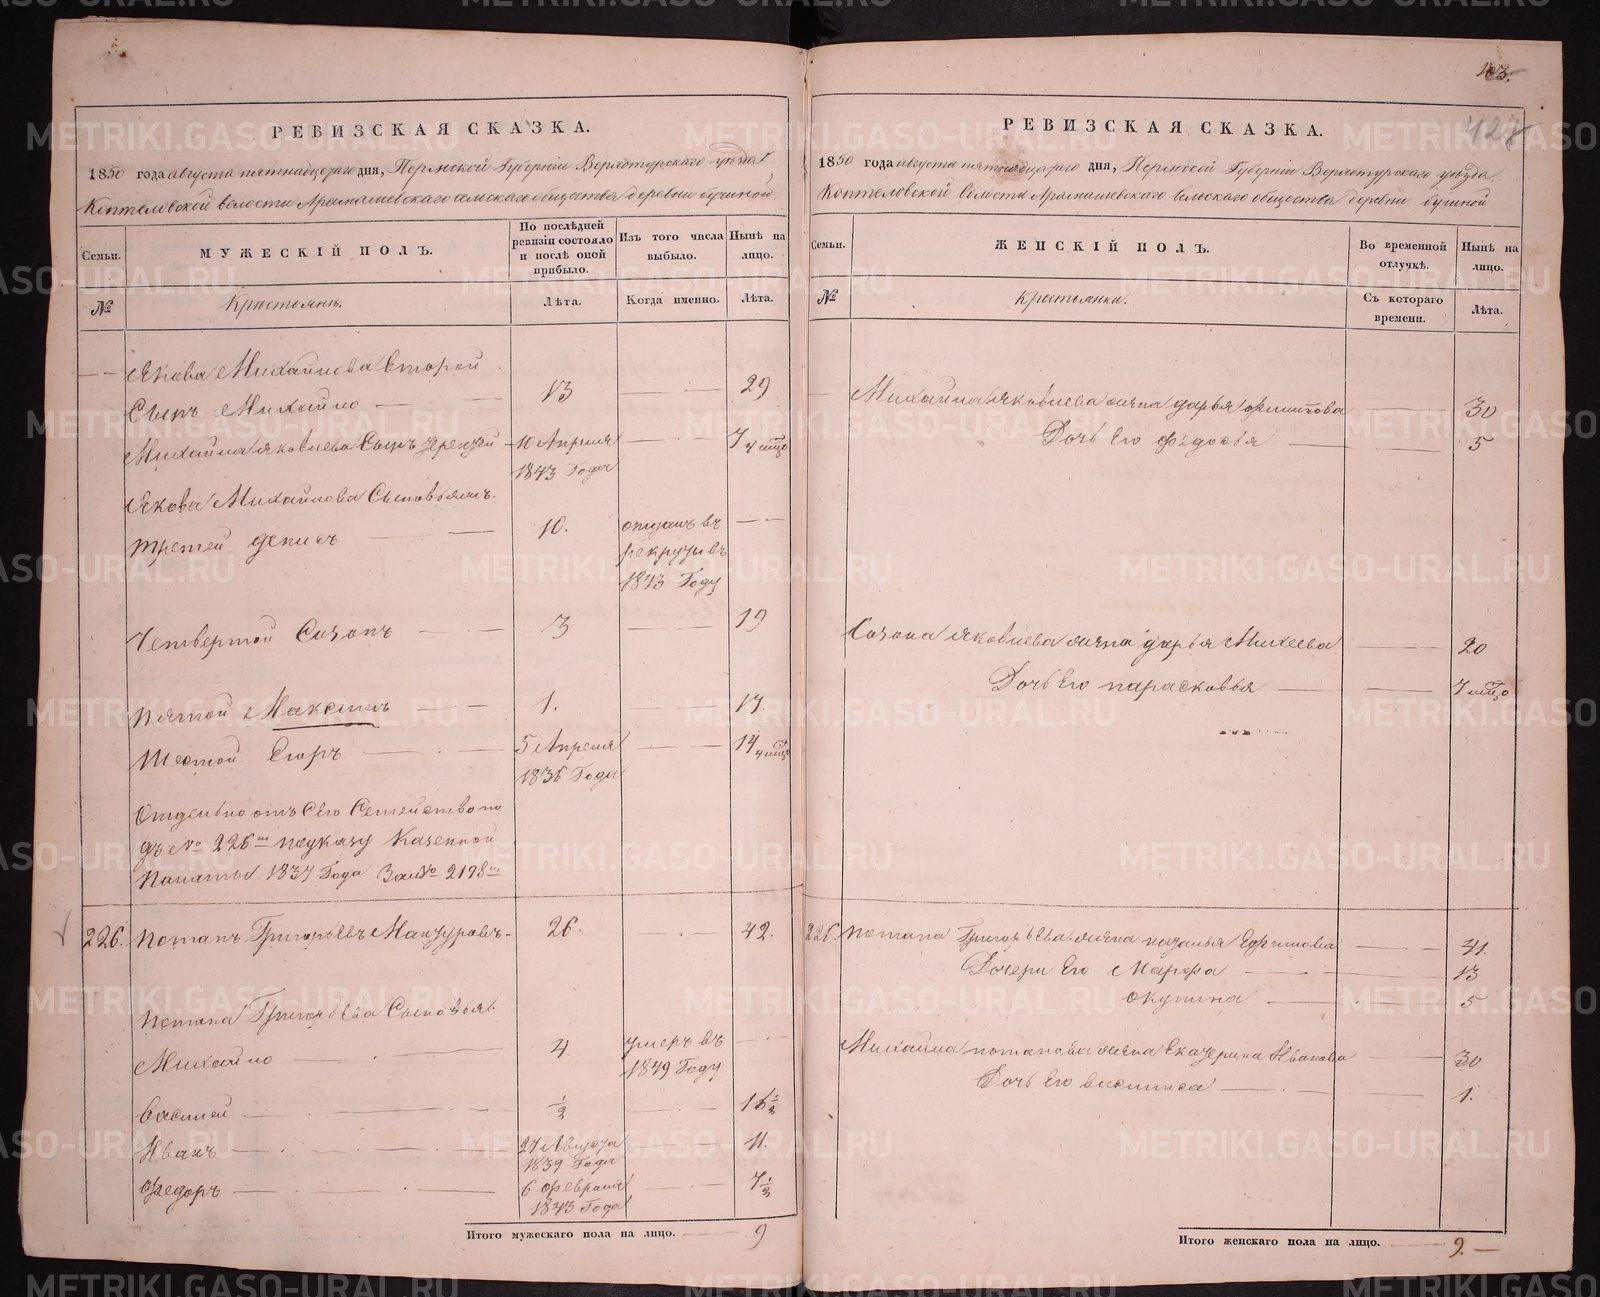 РЕВИЗСКАЯ СКАЗКА.
1850 года августа пятнадцатаго дня, Пермской Губерніи Верхотурскаго уезда
Коптеловской волости Арамашевскаго сельскаго общества деревни бучиной
Семьи.
МУЖЕСКІЙ ПОЛЪ.
По послѣдней ревизіи состояло и послѣ оной прибыло.
Изъ того числа выбыло.
Нынѣ на лицо.
№
Крестьяне.
Лѣта.
Когда именно.
Лѣта.
Якова Михайлова второй
Сынъ Михайло 13 29
Михайла Яковлева Сынъ 10 Апреля 7 4 мсцо
1843 Года
Якова Михайлова Сыновья
третей денисъ 10. отданъ въ
рекруты въ
1843 Году
Четвертой Созонъ 3 19
Пятой Максимъ 1. 17.
Шестой Егоръ 5 Апреля 14 4 мсцо
1836 Года
Отделено отъ Сего Семейства по
дъ № 226 по указу Казенной
Палаты 1837 Года За № 2198
226. Потапъ Григорьевъ Манзуровъ 26. 42.
Потапа Григорьева Сыновья
Михайло 4 умеръ въ
1849 Году
Василей ½ 16½
Иванъ 27 Августа 11.
1839 Года
Федоръ 6 февраля 7½
1843 Года
Итого мужескаго пола на лицо. 9
103.
427
РЕВИЗСКАЯ СКАЗКА.
1850 года августа пятнадцатаго дня, Пермской Губерніи Верхотурскаго уезда
Коптеловской волости Арамашевскаго сельскаго общества деревни бучиной
Семьи.
ЖЕНСКІЙ ПОЛЪ.
Во временной отлучкѣ.
Нынѣ на лицо.
№
Крестьянки.
Съ котораго времени.
Лѣта.
Михайла Яковлева жена дарья 30
Дочь Его федосья 5
Созона Яковлева жена дарья Михеева 20
Дочь Его парасковья 7 мсцо
226 Потапа Григорьева жена наталья Ефимова 41.
Дочери Его Марфа 13
окулина 5
Михайла потапова жена Екатерина Иванова 30
Дочь Его василиса 1.
Итого женскаго пола на лицо. 9.
METRIKI.GASO-URAL.RU